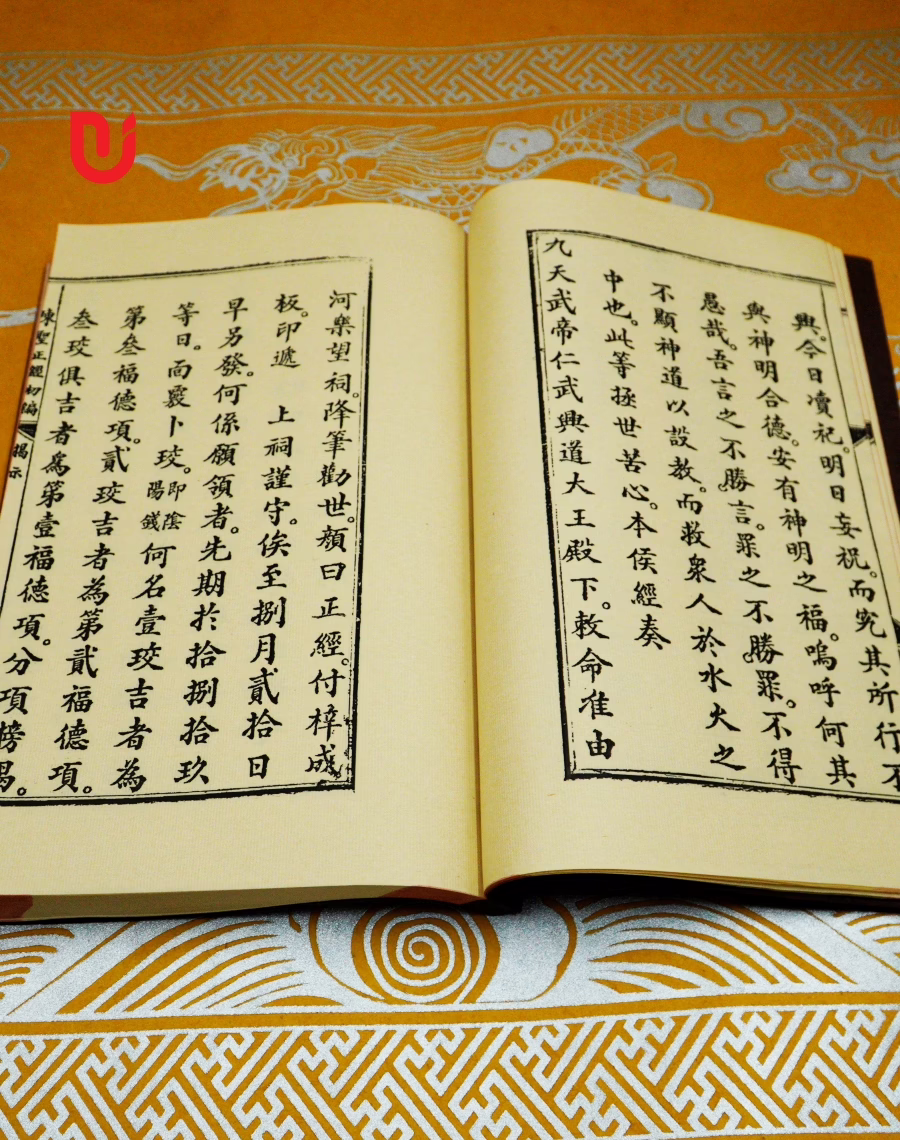 與。今日瀆祀。明日妄祝。而究其所行不
與神明合德。安有神明之福。嗚呼何其
愚哉。吾言之不勝言。罪之不勝罪。不得
不顯神道以設教。而救衆人於水火之
中也。此等拯世苦心。本侯經奏
九天武帝仁武興道大王殿下。敕命准由
河樂望祠。降筆勸世。顏曰正經。付梓成
板。印遞 上祠謹守。俟至捌月貳拾日
早另發。何係願領者。先期於拾捌拾玖
等日。而囊卜珓。即陰陽錢何名壹珓吉者為
第叁福德項。貳珓吉者為第貳福德項。
叁珓俱吉者為第壹福德項。分項榜
聖正經初編
揭示